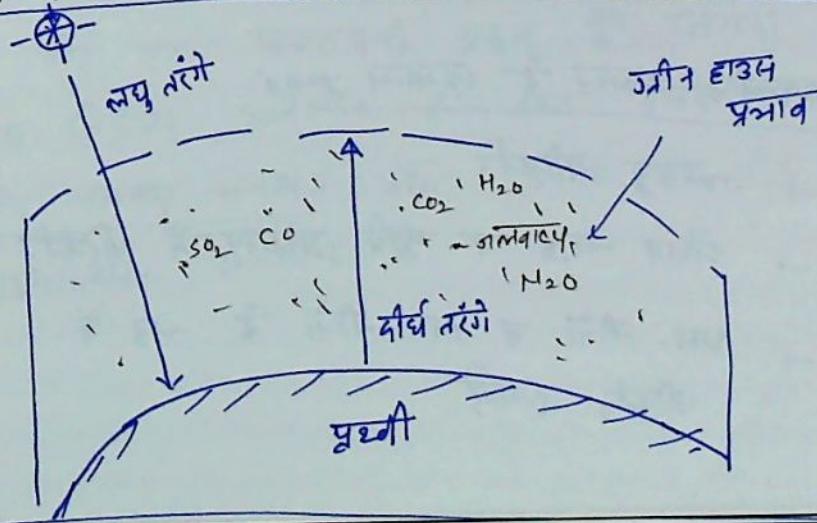 लघु तरंगे
ग्रीन हाउस
प्रभाव
CO2 H2O
SO2 CO
जलवाष्प
N2O
दीर्घ तरंगे
पृथ्वी